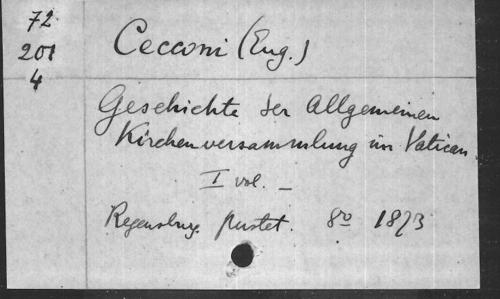 72
201
4
Cecconi (Eug.)
Geschichte der Allgemeinen
Kirchenversammlung im Vatican.
I vol. _
Regensburg. Pustet. 8º 1873